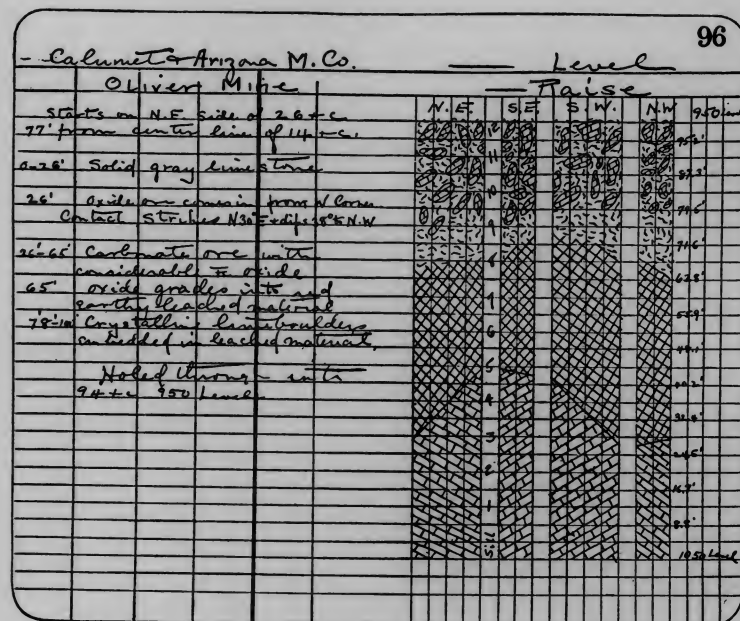 96
- Calumet & Arizona M. Co. — Level
Oliver Mine — Raise
Starts on N.E. side of 26 + c
77' from center line of 14 + c.
0-26' Solid gray limestone
26' oxide ore comes in from N Corner
Contact Strikes N30°E + dips 38° N.W
26'-65' Carbonate ore with
considerable Fe oxide
65' oxide grades into red
earthy leached material
78'- Crystalline lime boulders
imbedded in leached material.
Holed through into
94 + c 950 Level
N.E. S.E. S.W. N.W 950 Level
12
11
10
9
8
7
6
5
4
3
2
1
Sill
71.6'
62.8'
55.9'
24.5'
16.7'
8.8'
1050 Level